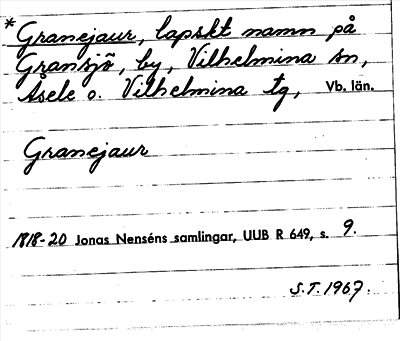 *Granejaur, lapskt namn på
Gransjö, by, Vilhelmina sn,
Åsele o. Vilhelmina tg, Vb. län.
Granejaur
1818-20 Jonas Nenséns samlingar, UUB R 649, s. 9.
S.T. 1967.